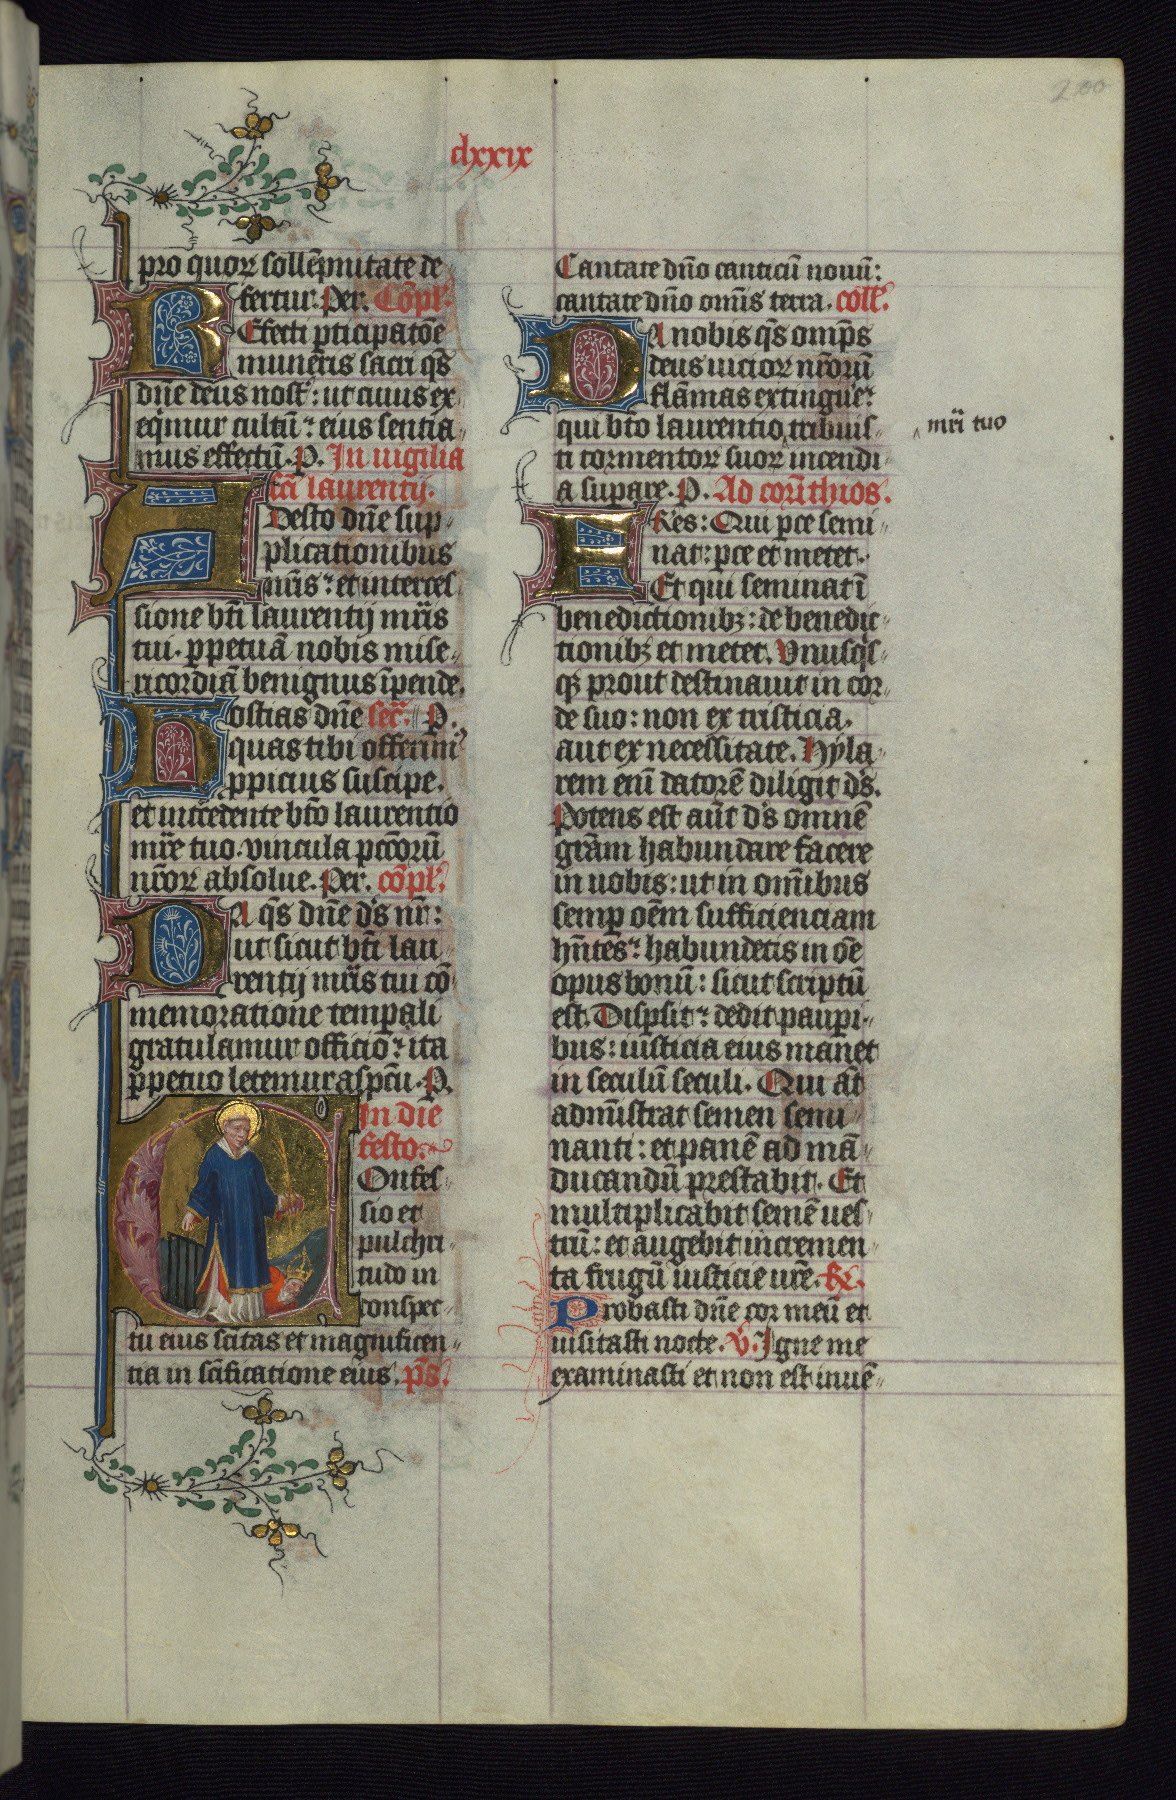 200
clxxix
pro quoꝝ sollẽpnitate de
fertur. Per. Cõpl̃.
Refecti ꝑticipatõe
muneris sacri qs̃
dñe deus nost̃: ut cuius ex
eqimur cultũ: eius sentia
mus effectũ. P. In uigilia
sc̃i laurentij.
Adesto dñe sup
plicationibus
nr̃is: et interces
sione bt̃i laurentij mr̃is
tui. ꝑpetuã nobis mise
ricordiã benignus ĩpende.
Hostias dñe secr̃. P.
quas tibi offerimꝰ
ꝓpicius suscipe.
et intc̃edente bt̃o laurentio
mr̃e tuo. vincula pcc̃oruũ
nr̃oꝝ absolue. Per. cõpl̃.
DA qs̃ dñe ds̃ nr̃:
ut sicut bt̃i lau
rentij mr̃is tui cõ
memoratione temꝑali
gratulamur officio: ita
ꝑpetuo letemur aspc̃tu. P.
In die
festo.
Confes
sio et
pulchri
tudo in
conspec
tu eius sc̃itas et magnificen
tia in sc̃ificatione eius. ps̃.
Cantate dño canticũ nouũ:
cantate dño omĩs terra. coll̃.
DA nobis qs̃ omp̃s
deus uicioꝝ nr̃orũ
flãmas extingue2:
qui bt̃o laurentio tribuis
mr̃i tuo
ti tormentoꝝ suoꝝ incendi
a supare. P. Ad corũthios.
FRẽs: Qui ꝑce semi
nat: ꝑce et metet.
Et qui seminat ĩ
benedictionibꝫ: de benedic
tionibꝫ et metet. Vnusqs
qꝫ prout destinauit in cor
de suo: non ex tristicia.
aut ex necessitate. Hyla
rem enĩ datorẽ diligit ds̃.
Potens est aũt ds̃ omnẽ
grãm habundare facere
in uobis: ut in omĩbus
semꝑ oẽm sufficienciam
hñtes: habundetis in oẽ
opus bonũ: sicut scriptũ
est. Disꝑsit: dedit pauꝑi
bus: iusticia eius manet
in seculũ seculi. Qui aũt
admĩstrat semen semi
nanti: et panẽ ad mã
ducandũ prestabit. Et
multiplicabit semẽ ues
trũ: et augebit incremen
ta frugũ iusticie ur̃e. R̃.
Probasti dñe cor meũ et
uisitasti nocte. V̉. Igne me
examinasti et non est inuẽ